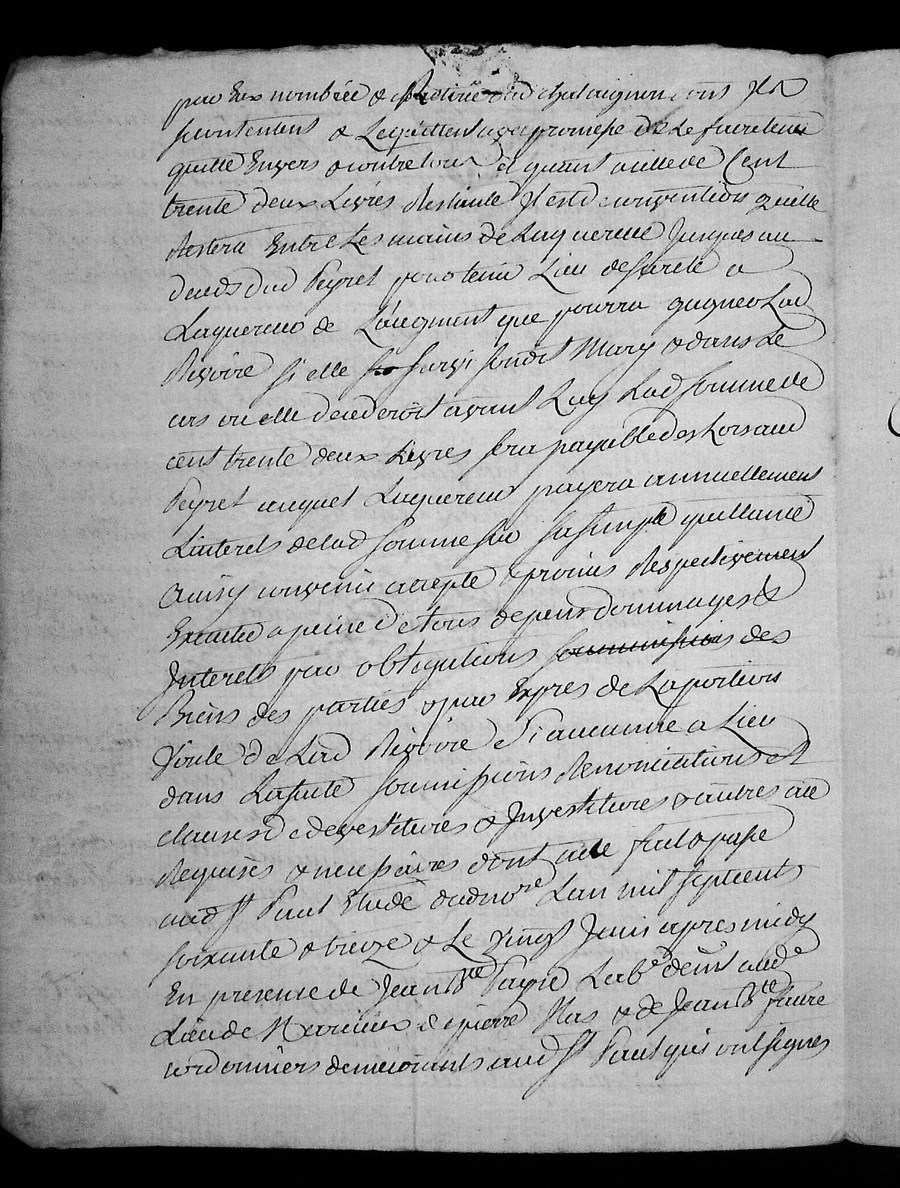 par Eux nombrée & Retirée dud chataignon dont Ils
se contentent & Lequittent avec promesse de Le faire tenir
quitte Envers & contre tous et quant a celle de Cent
trente deux Livres Restante Il est convention quelle
Restera Entre Les mains de Laquereur Jusques au
deceds dud Peyret pour tenir Lieu de sureté a
Laquereur de Laugment que pourra gagner Lad
Rivoire si elle survi sondit Mary & dans Le
cas ou elle decederoit avant Luy Lad somme de
cent trente deux Livres sera payable des Lors aud
Peyret auquel Laquereur payera annuellement
Linterets de lad somme sur sa simple quittance
Ainsy convenu accepté & promis Respectivement
Executer a peine de tous depens dommages &
Interets par obligations soumissions des
Biens des parties & par Expres de La portion
Vendue de Lad Rivoire si aucune a Lieu
dans La suite soumissions Renonciations et
clauses de devestitures & Investitures & autres au cas
Requises & necessaires dont acte fait & passé
aud St Paul Etude dud nore Lan mil sept cents
soixante & treize & Le vingt Juin apres midy
En presence de Jean Bte Payre Labr demt aud
Lieu de Marcieux de pierre Plas & de Jean Bte faure
cordonniers demeurants aud St Paul qui ont signes